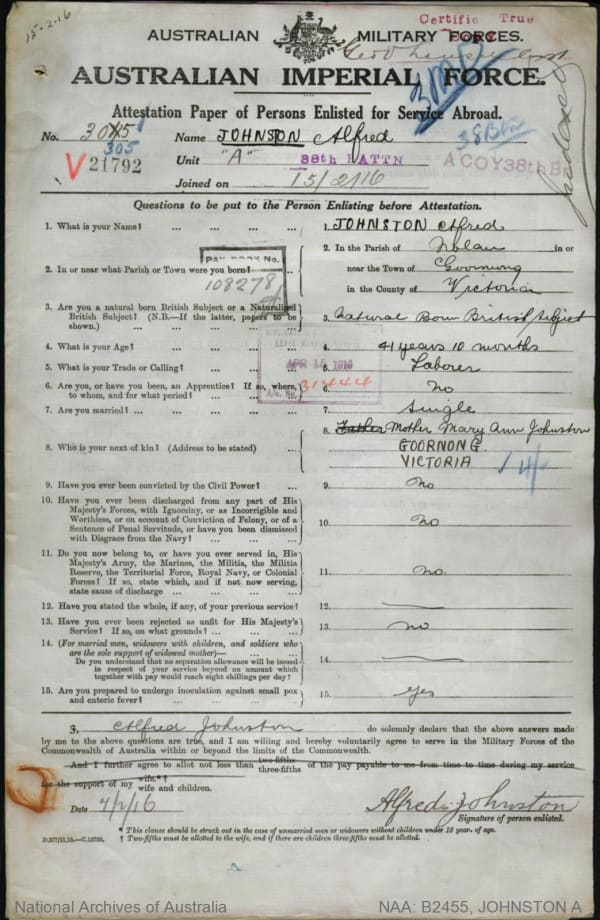 15.2.16
Certific True
AUSTRALIAN MILITARY FORCES.
AUSTRALIAN IMPERIAL FORCE.
Attestation Paper of Persons Enlisted for Service Abroad.
No. 3045 Name JOHNSTON Alfred
305
V 21792 Unit "A" 38th BATTN A COY 38th Ba
38 Btn
Joined on 15/2/16
Indexed
Questions to be put to the Person Enlisting before Attestation.
1. What is your Name? ... ... ... ... 1. JOHNSTON Alfred
2. In or near what Parish or Town were you born? ... 2. In the Parish of Nolan in or
near the Town of Goornong
in the County of Victoria
PAY BOOK No.
108278
3. Are you a natural born British Subject or a Naturalized
British Subject? (N.B.—If the latter, papers to be
shown.) ... ... ... ... ... 3. Natural Born British Subject
4. What is your Age? ... ... ... ... 4. 41 years 10 months
APR 15 1916
5. What is your Trade or Calling? ... ... ... 5. Laborer
A/c. No. 31444
6. Are you, or have you been, an Apprentice? If so, where,
to whom, and for what period? ... ... ... 6. No
7. Are you married? ... ... ... ... 7. Single
8. Who is your next of kin? (Address to be stated) ... 8. Father Mother Mary Ann Johnston
GOORNONG
VICTORIA
9. Have you ever been convicted by the Civil Power? ... 9. No
10. Have you ever been discharged from any part of His
Majesty's Forces, with Ignominy, or as Incorrigible and
Worthless, or on account of Conviction of Felony, or of a
Sentence of Penal Servitude, or have you been dismissed
with Disgrace from the Navy? ... ... ... 10. No
11. Do you now belong to, or have you ever served in, His
Majesty's Army, the Marines, the Militia, the Militia
Reserve, the Territorial Force, Royal Navy, or Colonial
Forces? If so, state which, and if not now serving,
state cause of discharge ... ... ... ... 11. no
12. Have you stated the whole, if any, of your previous service? 12. —
13. Have you ever been rejected as unfit for His Majesty's
Service? If so, on what grounds? ... ... ... 13. no
14. (For married men, widowers with children, and soldiers who
are the sole support of widowed mother)— ... ...
Do you understand that no separation allowance will be issued
in respect of your service beyond an amount which
together with pay would reach eight shillings per day? 14. —
15. Are you prepared to undergo inoculation against small pox
and enteric fever? ... ... ... ... 15. Yes
I, Alfred Johnston do solemnly declare that the above answers made
by me to the above questions are true, and I am willing and hereby voluntarily agree to serve in the Military Forces of the
Commonwealth of Australia within or beyond the limits of the Commonwealth.
And I further agree to allot not less than two-fifths three-fifths of the pay payable to me from time to time during my service
for the support of my wife.*† wife and children.
Date 7/2/16 Alfred Johnston
Signature of person enlisted.
* This clause should be struck out in the case of unmarried men or widowers without children under 18 years of age.
† Two-fifths must be allotted to the wife, and if there are children three-fifths must be allotted.
National Archives of Australia NAA: B2455, JOHNSTON A